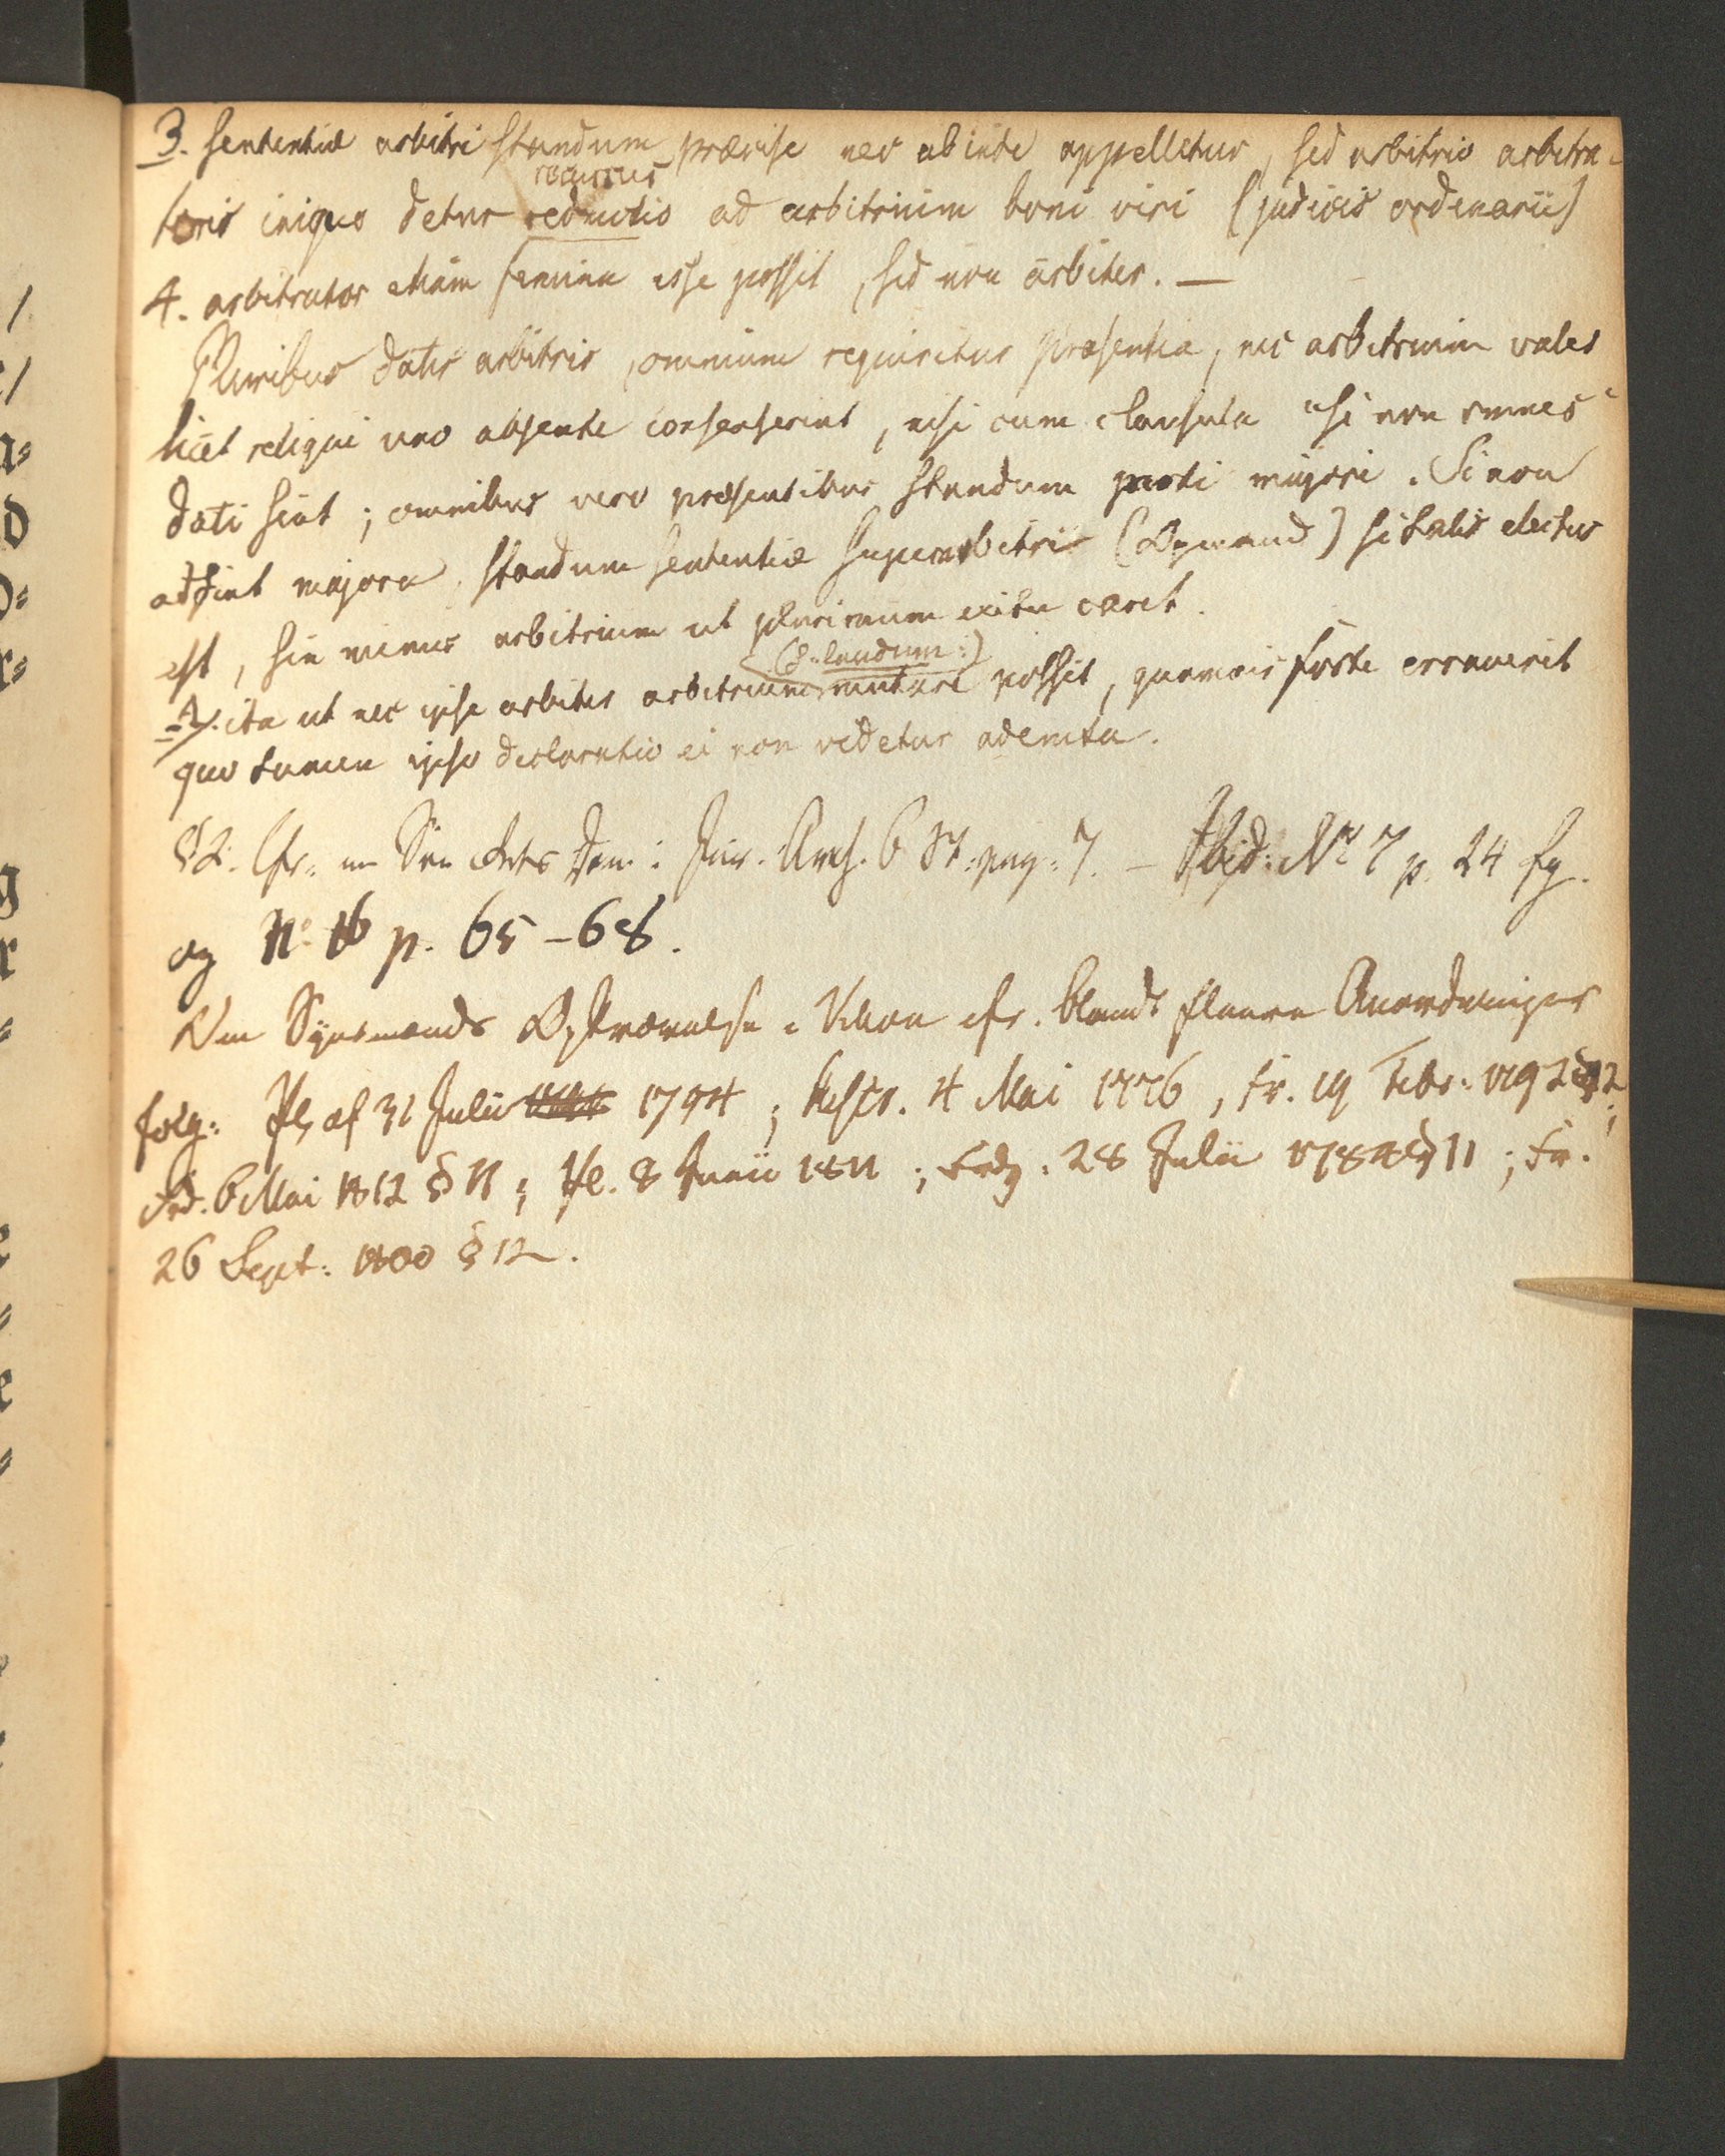 3. sententiæ arbitri standum præcise nec abinde appelletur, sed arbitrio arbitra-
recursus
toris iniquo detur reductio ad arbitrium boni viri (judicis ordinarii)
4. arbitrator etiam femina esse possit, sed non arbiter. —
Pluribus datis arbitris, omnium requiritur præsentia, nec arbitrium valet
licet reliqui uno absente consenserint, nisi cum clausula "si non omnes"
dati sint; omnibus vero præsentibus standum parti majori. Si non
adsint majora, standum sententiæ superarbitri (Opmand) si talis electus
est, sin minus arbitrium ut plurimum exitu caret.
(ɔ: laudum:)
ita ut nec ipse arbiter arbitrium mutare possit, quamvis forte erraverit
quo tamen ipso declaratio ei non videtur ademta.
§2. Cfr. en Dom i Jur. Arch. 6 pag: 7. — Ibid: No 7 p. 24 fg.
og No 16 p. 65-68.
Om Synsmænds Opkrævelse cfr. blandt fleere Anordninger
følg: Pl. af 31 Julii 1794; Rescr. 4 Mai 1776, Fr. 19 Febr: 1792 § 2;
Frd. 6 Mai 1812 § 11; Pl. 8 Junii 1811; Frdg. 28 Julii 1784 § 11; Fr.
26 Sept: 1800 § 12.